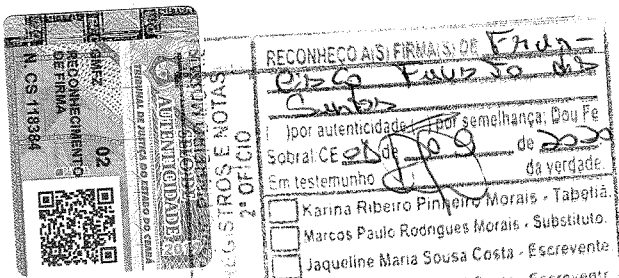 N CS 118364
RECONHECIMENTO
DE FIRMA
02
TRIBUNAL DE JUSTIÇA DO ESTADO DO CEARÁ
AUTENTICIDADE
REGISTROS E NOTAS
2º OFÍCIO
RECONHEÇO A(S) FIRMA(S) DE Fran-
cisco Fausto dos
Santos
( )por autenticidade ( )por semelhança; Dou Fe
Sobral:CE de 09 de 2020
Em testemunho da verdade.
Karina Ribeiro Pinheiro Morais - Tabeliã.
Marcos Paulo Rodrigues Morais - Substituto.
Jaqueline Maria Sousa Costa - Escrevente.